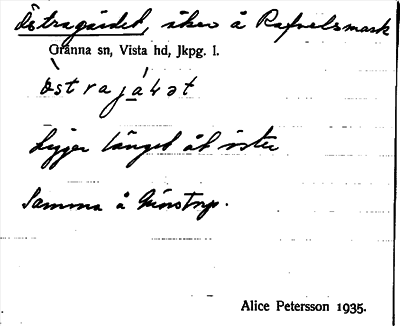 Östragärdet, åker å Rafvelsmark
Gränna sn, Vista hd, Jkpg. l.
östrajáɫət
Ligger längst åt öster
Samma å
Alice Petersson 1935.